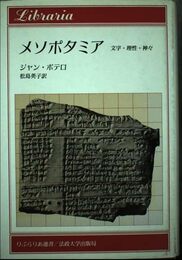 Libraria
メソポタミア 文字・理性・神々
ジャン・ボテロ
松島英子訳
りぶらりあ選書/法政大学出版局